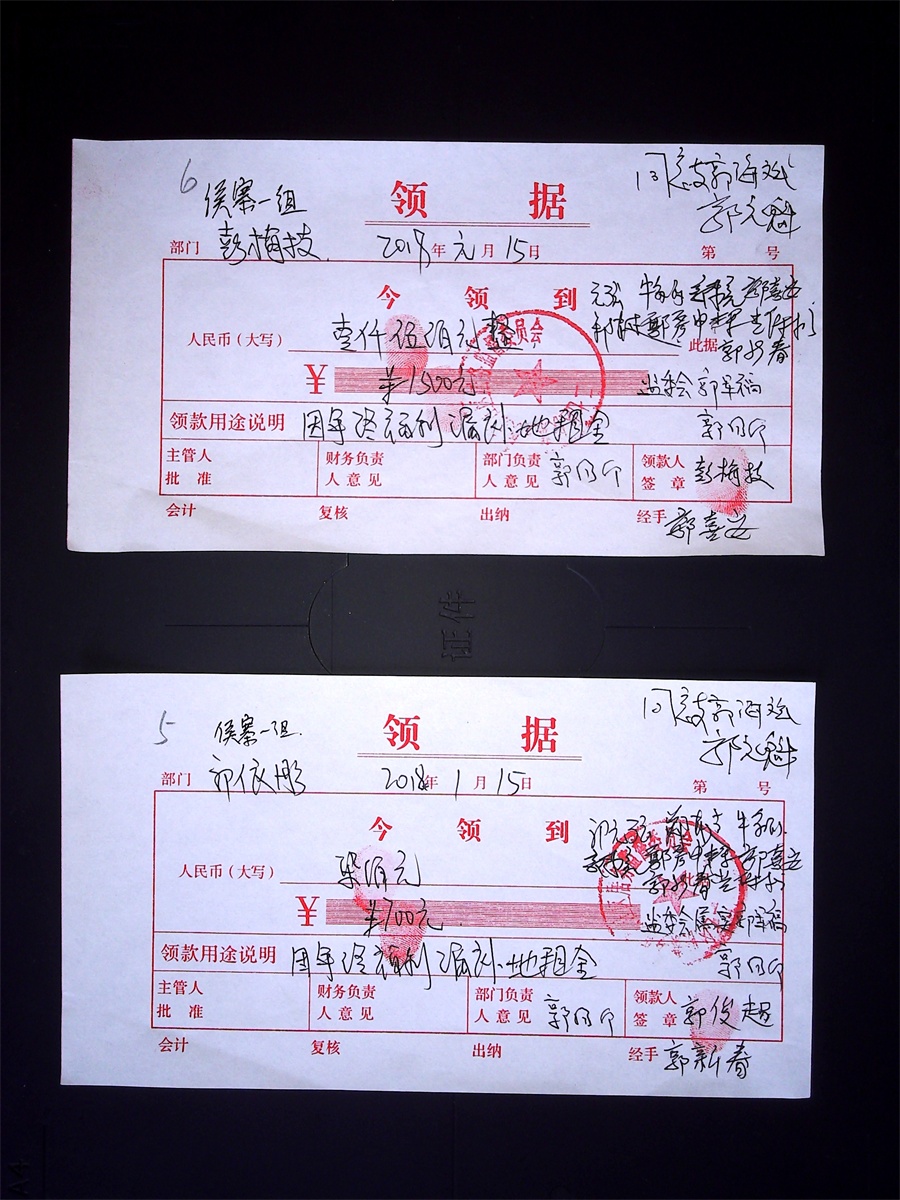 6
侯寨一组
领 据
同意支郭海斌
郭元魁
部门 彭梅枝 2018年元月15日 第 号
今 领 到
人民币（大写） 壹仟伍佰元整
此据
郭新春
¥ ¥1500元 监委会 郭军福
领款用途说明 因年终福利漏补.地租金
主管人批准 财务负责人意见 部门负责人意见 领款人签章 彭梅枝
会计 复核 出纳 经手 郭喜立
证件
5
侯寨一组.
领 据
同意支郭海斌
郭元魁
部门 郭依彤 2018年1月15日 第 号
今 领 到
人民币（大写） 柒佰元
郭新春
¥ ¥700元 监委会属实 郭军福
领款用途说明 因年终福利漏补.地租金
主管人批准 财务负责人意见 部门负责人意见 领款人签章 郭俊超
会计 复核 出纳 经手 郭新春
A4